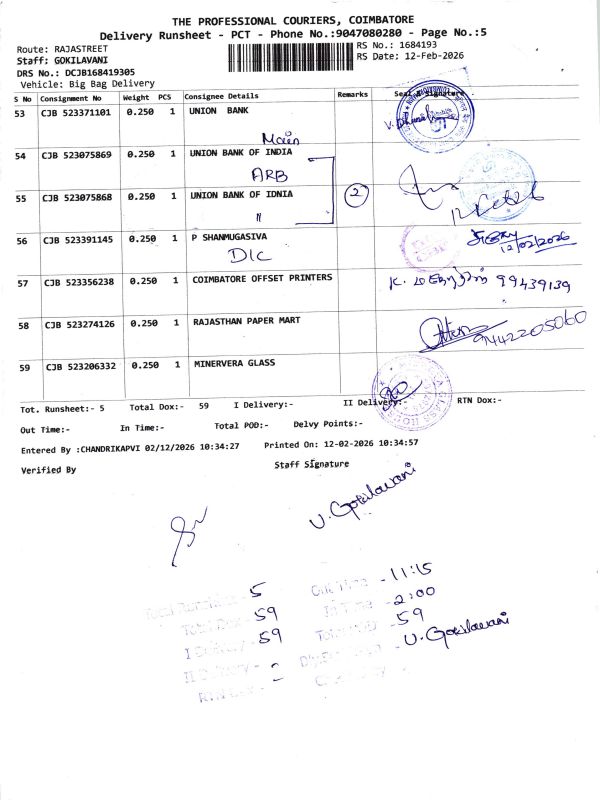 THE PROFESSIONAL COURIERS, COIMBATORE
Delivery Runsheet - PCT - Phone No.:9047080280 - Page No.:5
Route: RAJASTREET
RS No.: 1684193
Staff: GOKILAVANI
RS Date: 12-Feb-2026
DRS No.: DCJB168419305
Vehicle: Big Bag Delivery
S No Consignment No Weight PCS Consignee Details Remarks Seal & Signature
53 CJB 523371101 0.250 1 UNION BANK
Main
54 CJB 523075869 0.250 1 UNION BANK OF INDIA
ARB
55 CJB 523075868 0.250 1 UNION BANK OF IDNIA 2
"
56 CJB 523391145 0.250 1 P SHANMUGASIVA
12/02/2026
DLC
57 CJB 523356238 0.250 1 COIMBATORE OFFSET PRINTERS K. 99439139
58 CJB 523274126 0.250 1 RAJASTHAN PAPER MART 9442205060
59 CJB 523206332 0.250 1 MINERVERA GLASS
Tot. Runsheet:- 5 Total Dox:- 59 I Delivery:- II Delivery:- RTN Dox:-
Out Time:- In Time:- Total POD:- Delvy Points:-
Entered By :CHANDRIKAPVI 02/12/2026 10:34:27 Printed On: 12-02-2026 10:34:57
Verified By Staff Signature
U. Gokilavani
Total Runsheet - 5 Out Time - 11:15
Total Dox - 59 In Time - 2:00
I Delivery - 59 Total POD - 59
II Delivery - U. Gokilavani